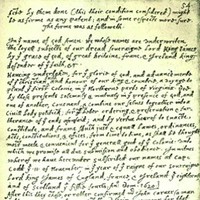 54
by them done (this their condition considered) might
be as firme as any patent; and in some respects more sure.
The forme was as followeth.
In ye name of god Amen. We whose names are vnderwriten,
the loyall subjects of our dread soueraigne Lord King James
by ye grace of god, of great britaine, franc, & Ireland king,
defender of ye faith, &c.
Haueing vndertaken, for ye glorie of god, and aduancemente
of ye christian faith and honour of our king & countrie, a voyage to
plant ye first colonie in ye Northerne parts of Virginia. Doe
by these presents solemnly & mutualy in ye presence of god, and
one of another, couenant, & combine our selues togeather into a
ciuill body politick; for our better ordering, & preseruation & fur-
therance of ye ends aforesaid; and by vertue hearof to enacte,
constitute, and frame shuch just & equall lawes, ordinances,
Acts, constitutions, & offices, from time to time, as shall be thought
most meete & conuenient for ye generall good of ye colonie: vnto
which we promise all due submission and obedience. In witnes
wherof we haue herevnder subscribed our names at cap-
codd ye .11. of Nouember, in ye year of ye raigne of our soueraigne
Lord king James of England, france, & Ireland ye eighteenth
and of Scotland ye fiftie fourth. An°: Dom. 1620.
After this they chose, or rather confirmed mr John Carver (a man